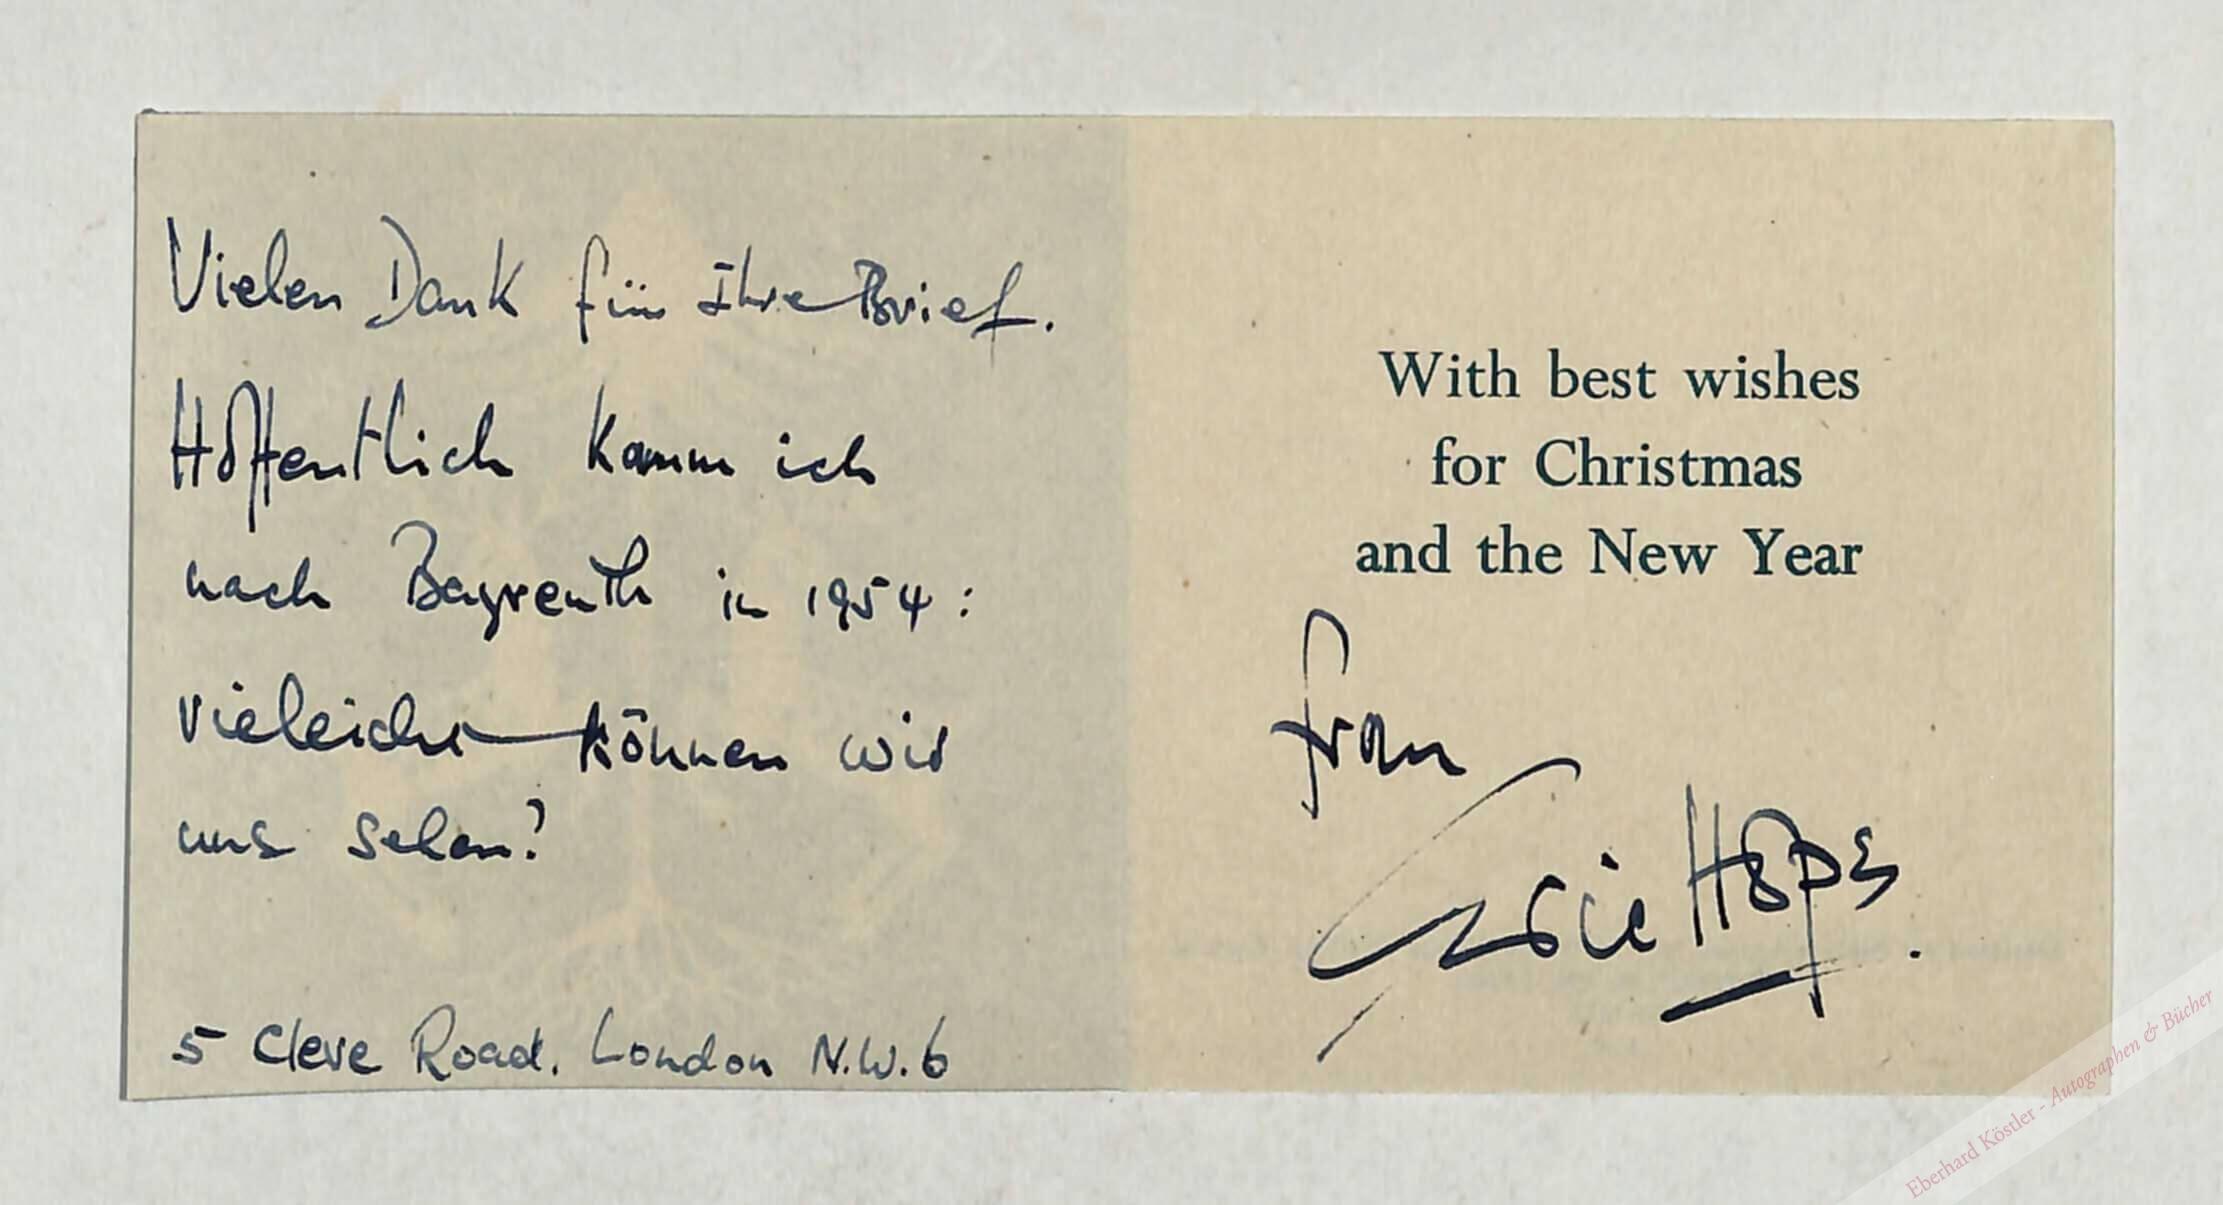 Vielen Dank für Ihre Brief.
Hoffentlich komm ich
nach Bayreuth in 1954:
vieleicht können wir
uns sehen?
5 Cleve Road. London N.W.6
With best wishes
for Christmas
and the New Year
from
Hope.
Eberhard Köstler - Autographen & Bücher